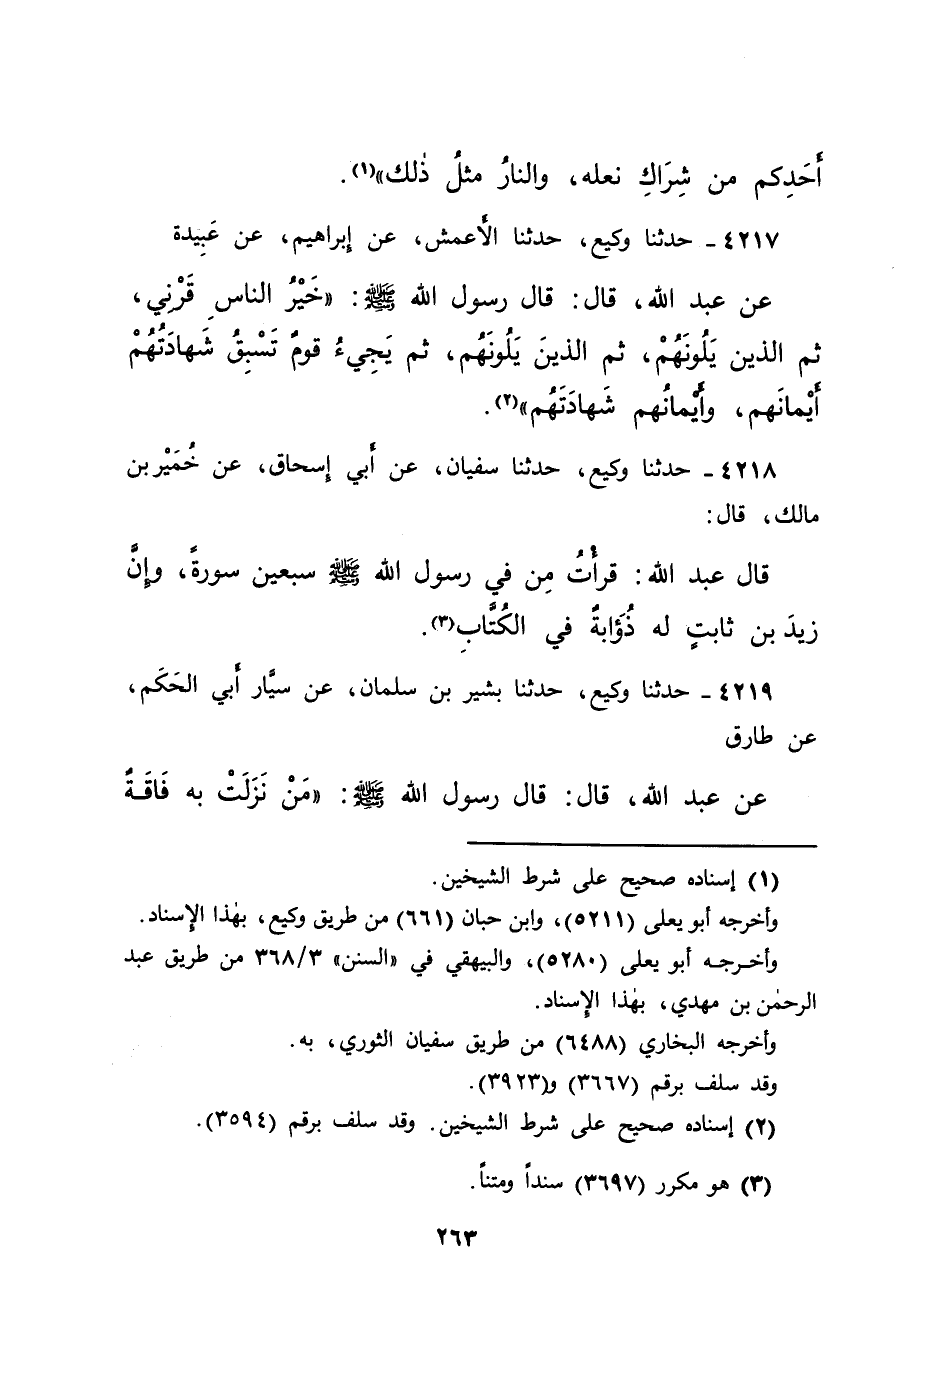 أَحَدِكم من شِرَاكِ نعله، والنارُ مثلُ ذٰلك»(١).
٤٢١٧ ـ حدثنا وكيع، حدثنا الأعمش، عن إبراهيم، عن عَبِيدة
عن عبد الله، قال: قال رسول الله ﷺ: «خَيْرُ الناسِ قَرْنِي،
ثم الذين يَلُونَهُمْ، ثم الذينَ يَلُونَهُم، ثم يَجِيءُ قومٌ تَسْبِقُ شَهادَتُهُمْ
أَيْمانَهم، وأَيْمانُهم شَهادَتَهُم»(٢).
٤٢١٨ ـ حدثنا وكيع، حدثنا سفيان، عن أَبي إسحاق، عن خُمَيْر بن
مالك، قال:
قال عبد الله: قرأْتُ مِن في رسول الله ﷺ سبعين سورةً، وإنَّ
زيدَ بن ثابتٍ له ذُؤَابةٌ في الكُتَّابِ(٣).
٤٢١٩ ـ حدثنا وكيع، حدثنا بشير بن سلمان، عن سيَّار أَبي الحَكَم،
عن طارق
عن عبد الله، قال: قال رسول الله ﷺ: «مَنْ نَزَلَتْ به فَاقَةٌ
(١) إسناده صحيح على شرط الشيخين.
وأخرجه أبو يعلى (٥٢١١)، وابن حبان (٦٦١) من طريق وكيع، بهٰذا الإسناد.
وأخرجه أبو يعلى (٥٢٨٠)، والبيهقي في «السنن» ٣٦٨/٣ من طريق عبد
الرحمٰن بن مهدي، بهٰذا الإسناد.
وأخرجه البخاري (٦٤٨٨) من طريق سفيان الثوري، به.
وقد سلف برقم (٣٦٦٧) و(٣٩٢٣).
(٢) إسناده صحيح على شرط الشيخين. وقد سلف برقم (٣٥٩٤).
(٣) هو مكرر (٣٦٩٧) سنداً ومتناً.
٢٦٣